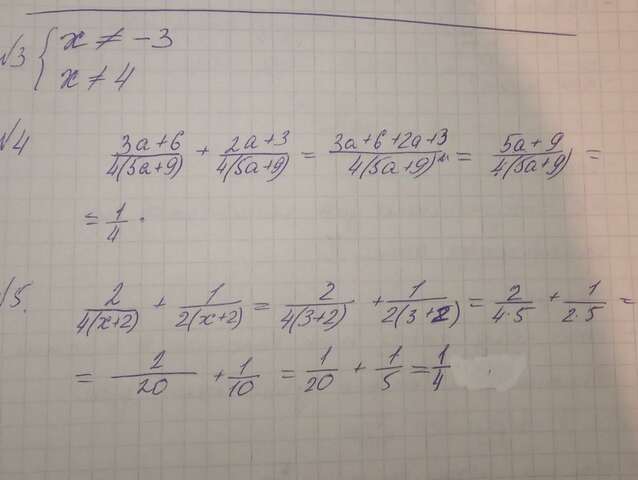 √3 { x ≠ -3
x ≠ 4
√4 3a+6/4(5a+9) + 2a+3/4(5a+9) = 3a+6+2a+3/4(5a+9) = 5a+9/4(5a+9) =
= 1/4.
√5. 2/4(x+2) + 1/2(x+2) = 2/4(3+2) + 1/2(3+2) = 2/4·5 + 1/2·5 =
= 2/20 + 1/10 = 1/20 + 1/5 = 1/4